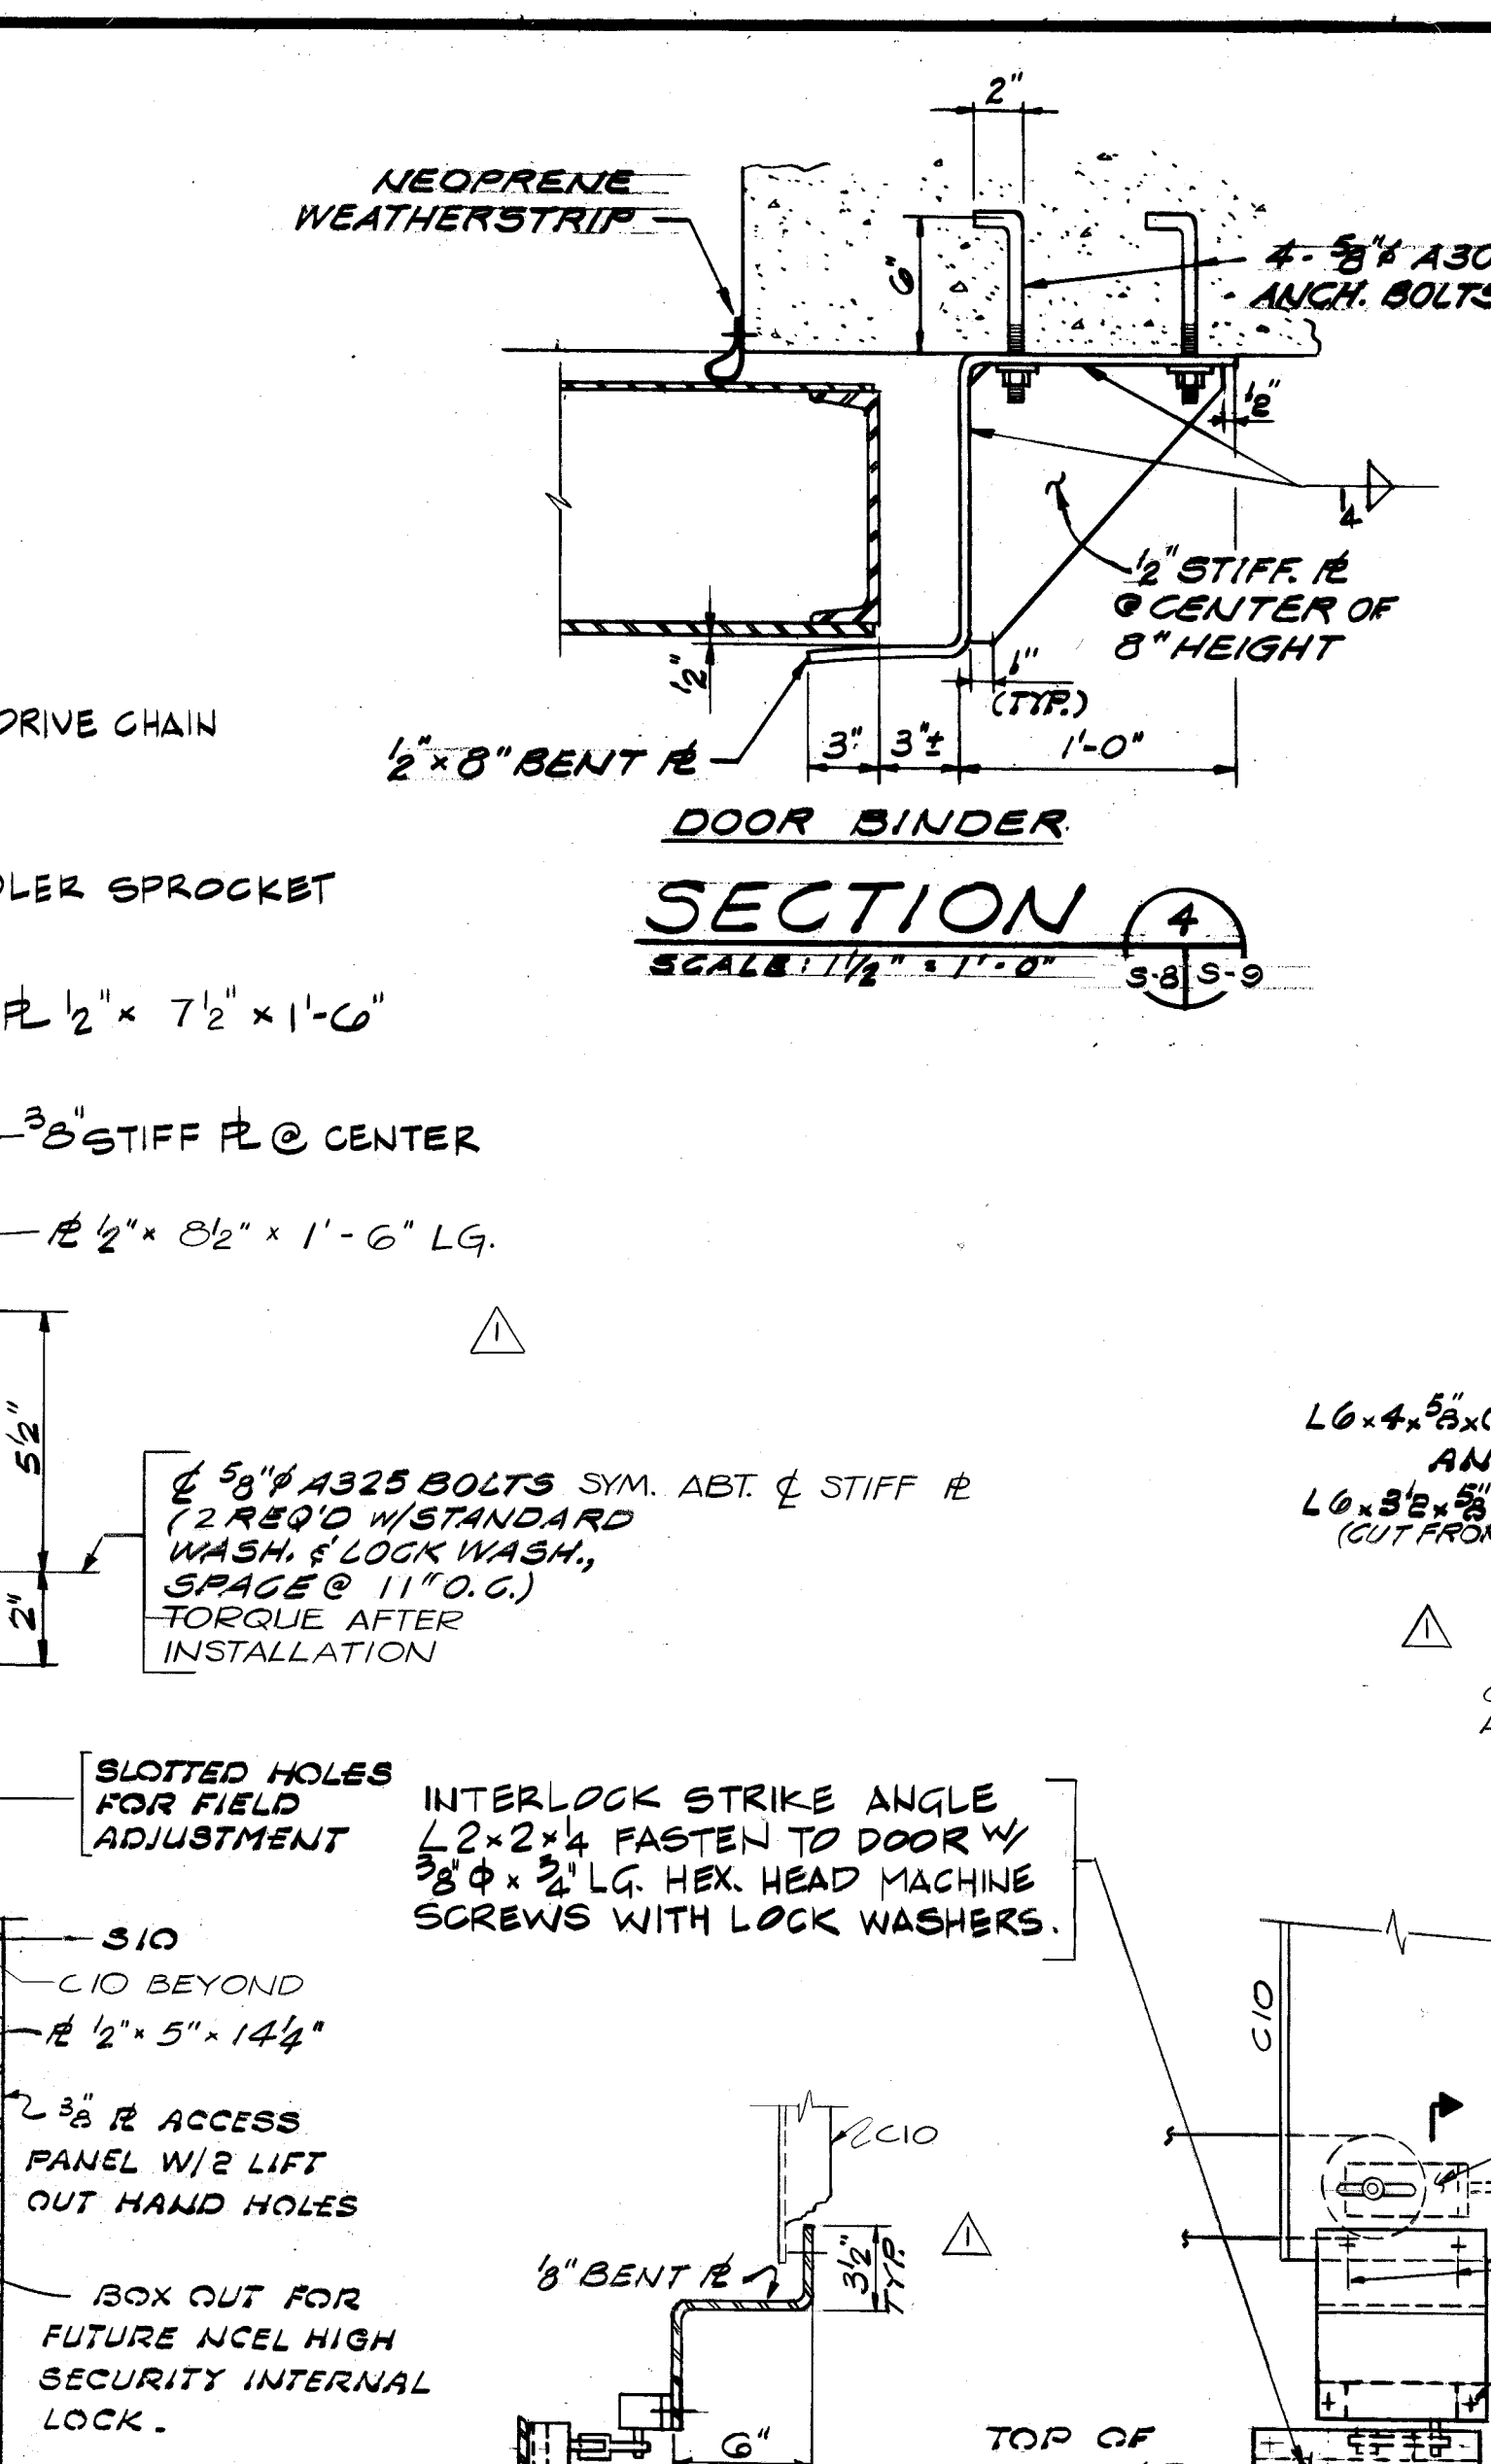 2"
NEOPRENE
WEATHERSTRIP
6"
4 - 5/8"⌀ A30
ANCH. BOLTS
1/2"
1/4
1/2" STIFF. ℄
@ CENTER OF
8" HEIGHT
1/2"
1"
(TYP.)
DRIVE CHAIN
1/2" × 8" BENT PL
3"
3"±
1'-0"
DOOR BINDER
SECTION
4
SCALE: 1 1/2" = 1'-0"
S-8
S-9
SPROCKET
PL 1/2" × 7 1/2" × 1'-6"
3/8" STIFF PL @ CENTER
PL 1/2" × 8 1/2" × 1'-6" LG.
1
5 1/2"
2"
℄ 5/8"⌀ A325 BOLTS SYM. ABT. ℄ STIFF PL
(2 REQ'D W/STANDARD
WASH. & LOCK WASH.,
SPACE @ 11" O.C.)
TORQUE AFTER
INSTALLATION
L6×4×5/8×
AN
L6×3 1/2×5/8"
(CUT FROM
1
SLOTTED HOLES
FOR FIELD
ADJUSTMENT
INTERLOCK STRIKE ANGLE
L 2×2×1/4 FASTEN TO DOOR W/
3/8"⌀ × 3/4" LG. HEX. HEAD MACHINE
SCREWS WITH LOCK WASHERS.
S10
C10 BEYOND
PL 1/2" × 5" × 14 1/4"
3/8" PL ACCESS
PANEL W/2 LIFT
OUT HAND HOLES
BOX OUT FOR
FUTURE NCEL HIGH
SECURITY INTERNAL
LOCK.
C10
C10
1/8" BENT PL
3 1/2"
TYP.
1
6"
TOP OF